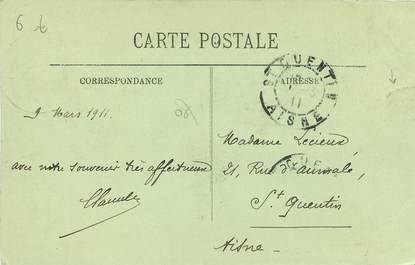 6
CARTE POSTALE
CORRESPONDANCE
ADRESSE
ST QUENTIN
11
AISNE
9 Mars 1911.
avec notre souvenir très affectueux
Madame
21, Rue d'aumale,
St Quentin
Aisne